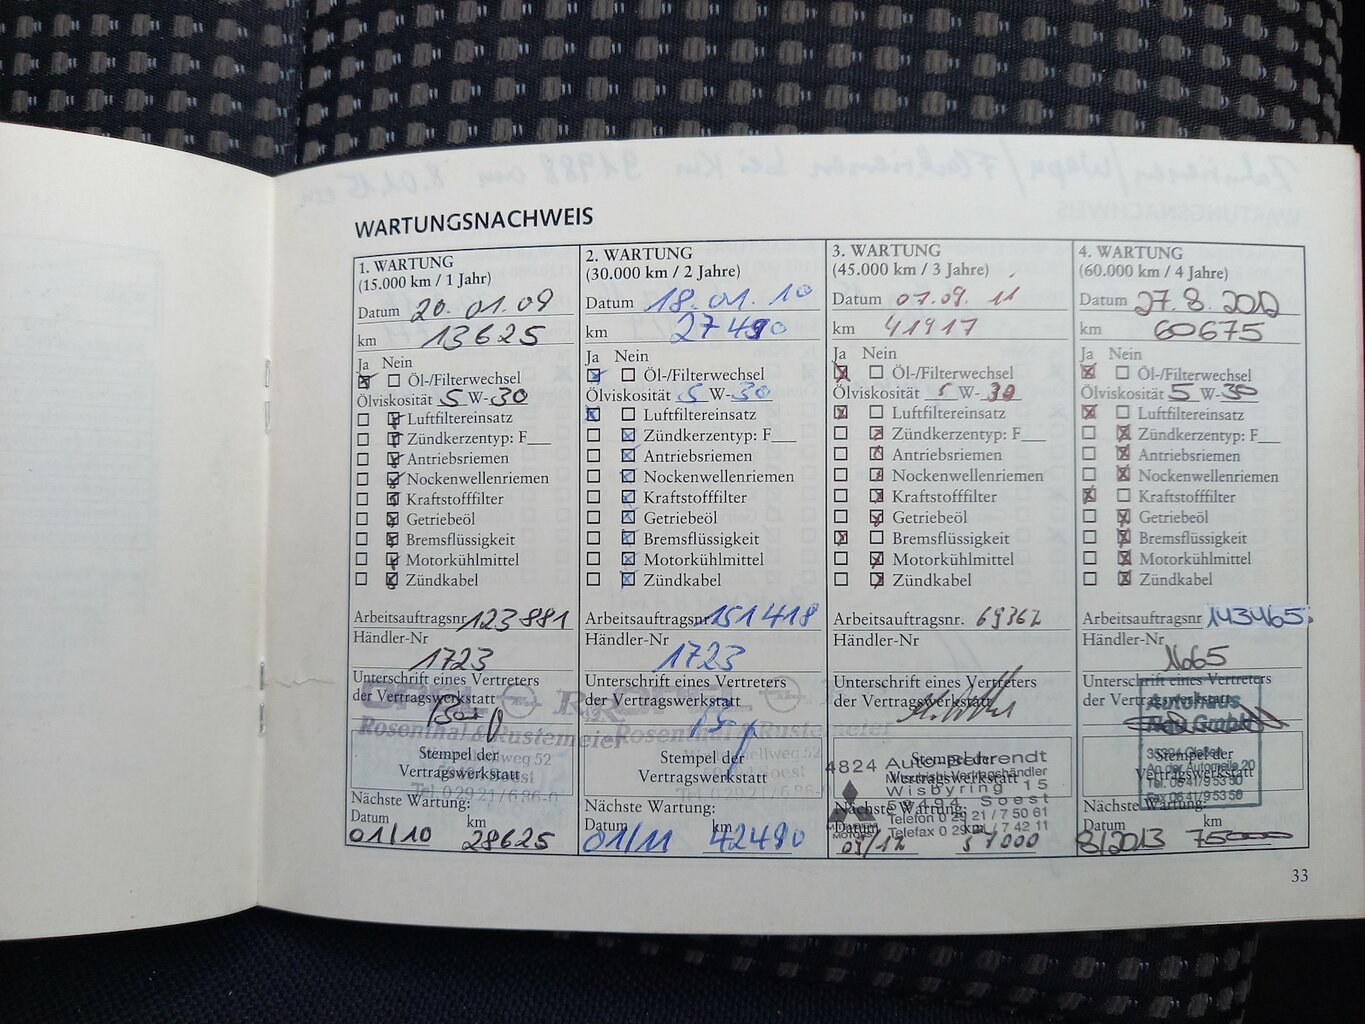 WARTUNGSNACHWEIS
1. WARTUNG
(15.000 km / 1 Jahr)
Datum 20.01.09
km 13625
Ja Nein
Öl-/Filterwechsel
Ölviskosität 5 W-30
Luftfiltereinsatz
Zündkerzentyp: F
Antriebsriemen
Nockenwellenriemen
Kraftstofffilter
Getriebeöl
Bremsflüssigkeit
Motorkühlmittel
Zündkabel
Arbeitsauftragsnr 123881
Händler-Nr
1723
Unterschrift eines Vertreters
der Vertragswerkstatt
Rosenthal & Rustemeier
Stempel der
Vertragswerkstatt
Nächste Wartung:
Datum km
01/10 28625
2. WARTUNG
(30.000 km / 2 Jahre)
Datum 18.01.10
km 27490
Ja Nein
Öl-/Filterwechsel
Ölviskosität 5 W-30
Luftfiltereinsatz
Zündkerzentyp: F
Antriebsriemen
Nockenwellenriemen
Kraftstofffilter
Getriebeöl
Bremsflüssigkeit
Motorkühlmittel
Zündkabel
Arbeitsauftragsnr 151418
Händler-Nr
1723
Unterschrift eines Vertreters
der Vertragswerkstatt
OPEL
Rosenthal & Rustemeier
Stempel der
Vertragswerkstatt
Nächste Wartung:
Datum km
01/11 42490
3. WARTUNG
(45.000 km / 3 Jahre)
Datum 07.09.11
km 41917
Ja Nein
Öl-/Filterwechsel
Ölviskosität 5 W-30
Luftfiltereinsatz
Zündkerzentyp: F
Antriebsriemen
Nockenwellenriemen
Kraftstofffilter
Getriebeöl
Bremsflüssigkeit
Motorkühlmittel
Zündkabel
Arbeitsauftragsnr. 69362
Händler-Nr
Unterschrift eines Vertreters
der Vertragswerkstatt
Stempel der
Vertragswerkstatt
4824 Auto-Behrendt
Mitsubishi-Vertragshändler
Wisbyring 15
59494 Soest
Telefon 0 29 21 / 7 50 61
Telefax 0 29 21 / 7 42 11
Nächste Wartung:
Datum km
09/12 57000
4. WARTUNG
(60.000 km / 4 Jahre)
Datum 27.8.2012
km 60675
Ja Nein
Öl-/Filterwechsel
Ölviskosität 5 W-30
Luftfiltereinsatz
Zündkerzentyp: F
Antriebsriemen
Nockenwellenriemen
Kraftstofffilter
Getriebeöl
Bremsflüssigkeit
Motorkühlmittel
Zündkabel
Arbeitsauftragsnr 143465
Händler-Nr
1665
Unterschrift eines Vertreters
der Vertragswerkstatt
Autohaus
GmbH
Gießen
An der Automeile 20
Tel. 0641/9 53 50
Fax 0641/9 53 50
Stempel der
Vertragswerkstatt
Nächste Wartung:
Datum km
8/2013 75000
33